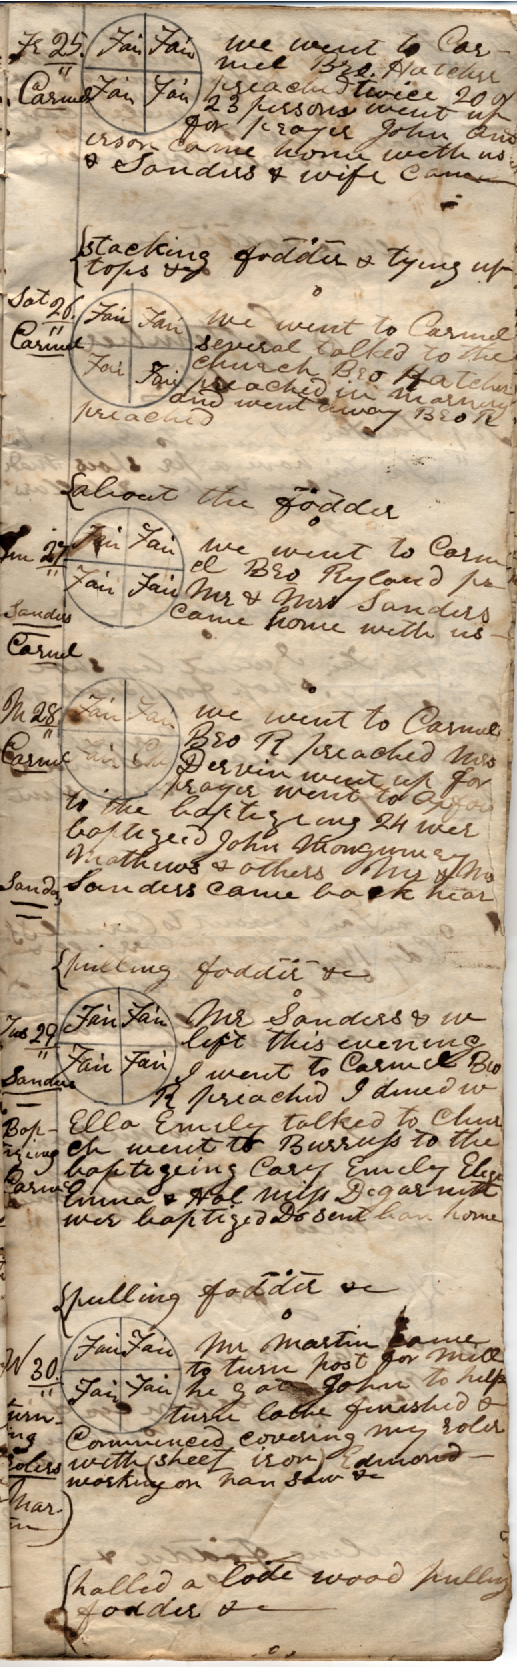 Fr 25. Fair Fair we went to Car-
mel Bro. Hatcher
Carmel Fair Fair preached twice 20 or
23 persons went up
for prayer John and
erson came home with us
& Sanders & wife came
{stacking fodder & tying up
tops &
Sat 26. Fair Fair we went to Carmel
Carmel several talked to the
church Bro Hatcher
Fair Fair preached in morning
and went away Bro R
preached
{about the fodder
Sun 27 Fair Fair we went to Carm
el Bro Ryland pr
Fair Fair Mr & Mrs Sanders
Sanders came home with us
Carmel
M 28 Fair Fair we went to Carmel
Bro R preached Mrs
Carmel Fair Dervin went up for
prayer went to
to the baptizeing 24 wer
baptized John Mongumery
Mathews & others Mr & Mrs
Sanders Sanders came back hear
{pulling fodder &c
Tus 29 Fair Fair Mr Sanders & w
left this evening
Fair Fair I went to Carmel Bro
Sanders R preached I dined w
Bap- Ella Emily talked to Chur
tizing ch went to Burruss to the
baptizeing Cary Emely Eliza
Carmel Emma & Hal Miss Degarnett
wer baptized Do sent han home
{pulling fodder &c
W 30. Fair Fair Mr Martin came
to turn post for Mill
Fair Fair he got John to help
turn- turn lathe finished &
ing Commenced covering my roler
rolers with (sheet iron) Edmond
working on han saw &c
Mar-
tin)
{halled a lode wood pulling
fodder &c